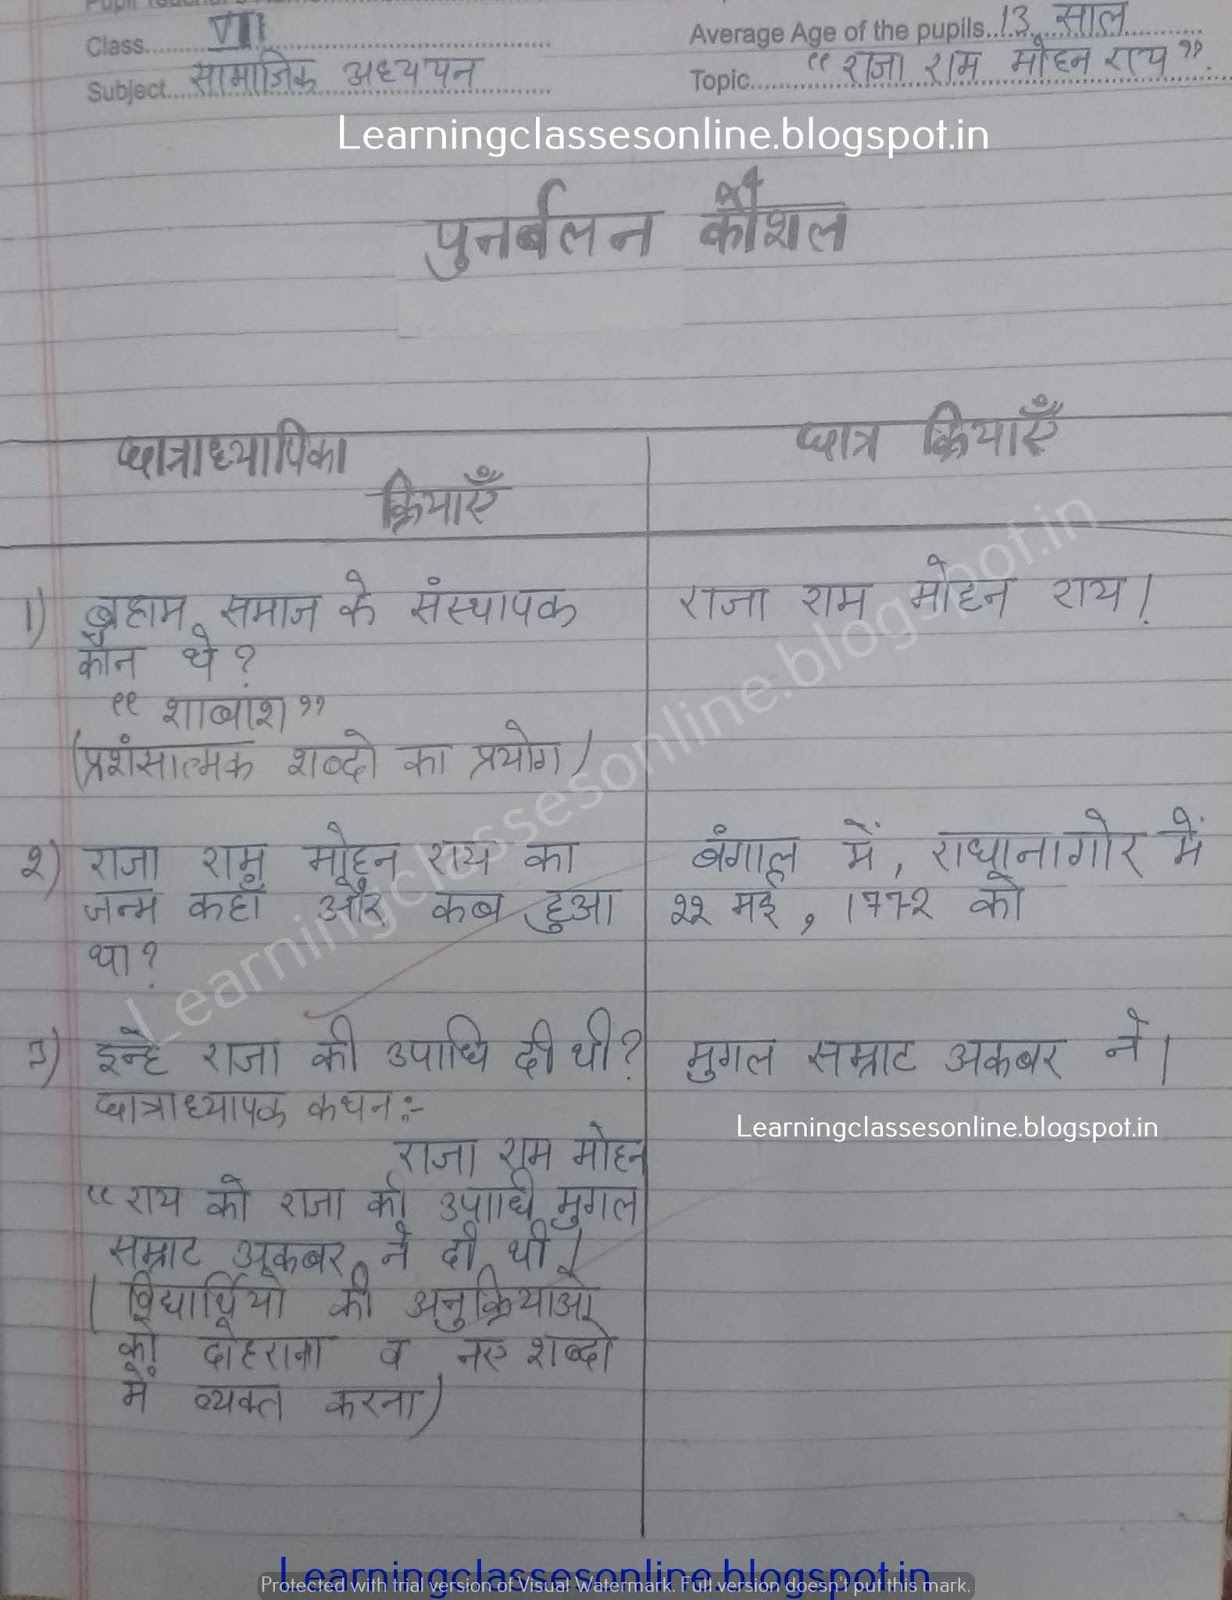 Class VIII Average Age of the pupils 13 साल
Subject सामाजिक अध्ययन Topic "राजा राम मोहन राय".
Learningclassesonline.blogspot.in
पुनर्बलन कौशल
छात्राध्यापिका
क्रियाएँ
छात्र क्रियाएँ
1) ब्रहाम समाज के संस्थापक
कौन थे?
"शाबाश"
(प्रशंसात्मक शब्दो का प्रयोग)
राजा राम मोहन राय।
२) राजा राम मोहन राय का
जन्म कहाँ और कब हुआ
था?
बंगाल में, राधानागोर में
२२ मई, 1772 को
३) इन्हे राजा की उपाधि दी थी?
मुगल सम्राट अकबर ने।
छात्राध्यापक कथन:-
राजा राम मोहन
"राय को राजा की उपाधि मुगल
सम्राट अकबर ने दी थी।
(विद्यार्थियो की अनुक्रियाओ
को दोहराना व नए शब्दो
में व्यक्त करना)
Learningclassesonline.blogspot.in
Learningclassesonline.blogspot.in
Learningclassesonline.blogspot.in
Protected with trial version of Visual Watermark. Full version doesn't put this mark.